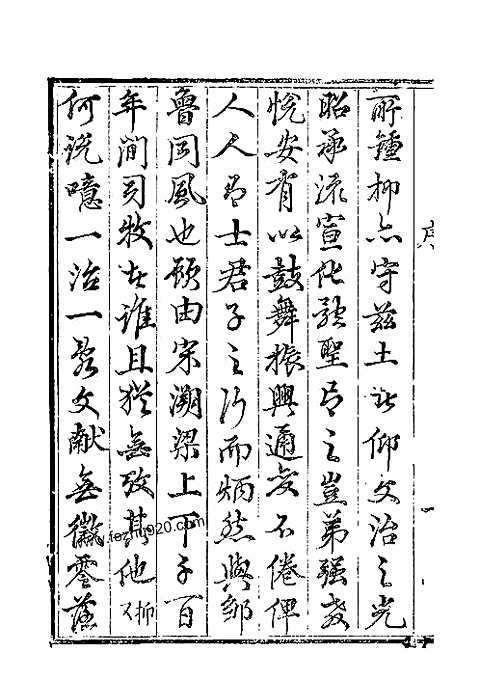 序
所鍾抑亦守茲土者仰文治之光
昭承流宣化聖之豈弟强教
悅安有以鼓舞振興通變不倦俾
人人有士君子之行而炳然與鄒
魯同風也顧由宋溯梁上下千百
年間司牧者誰且猶無攷其他抑又
何說噫一治一亂文献無徵零落